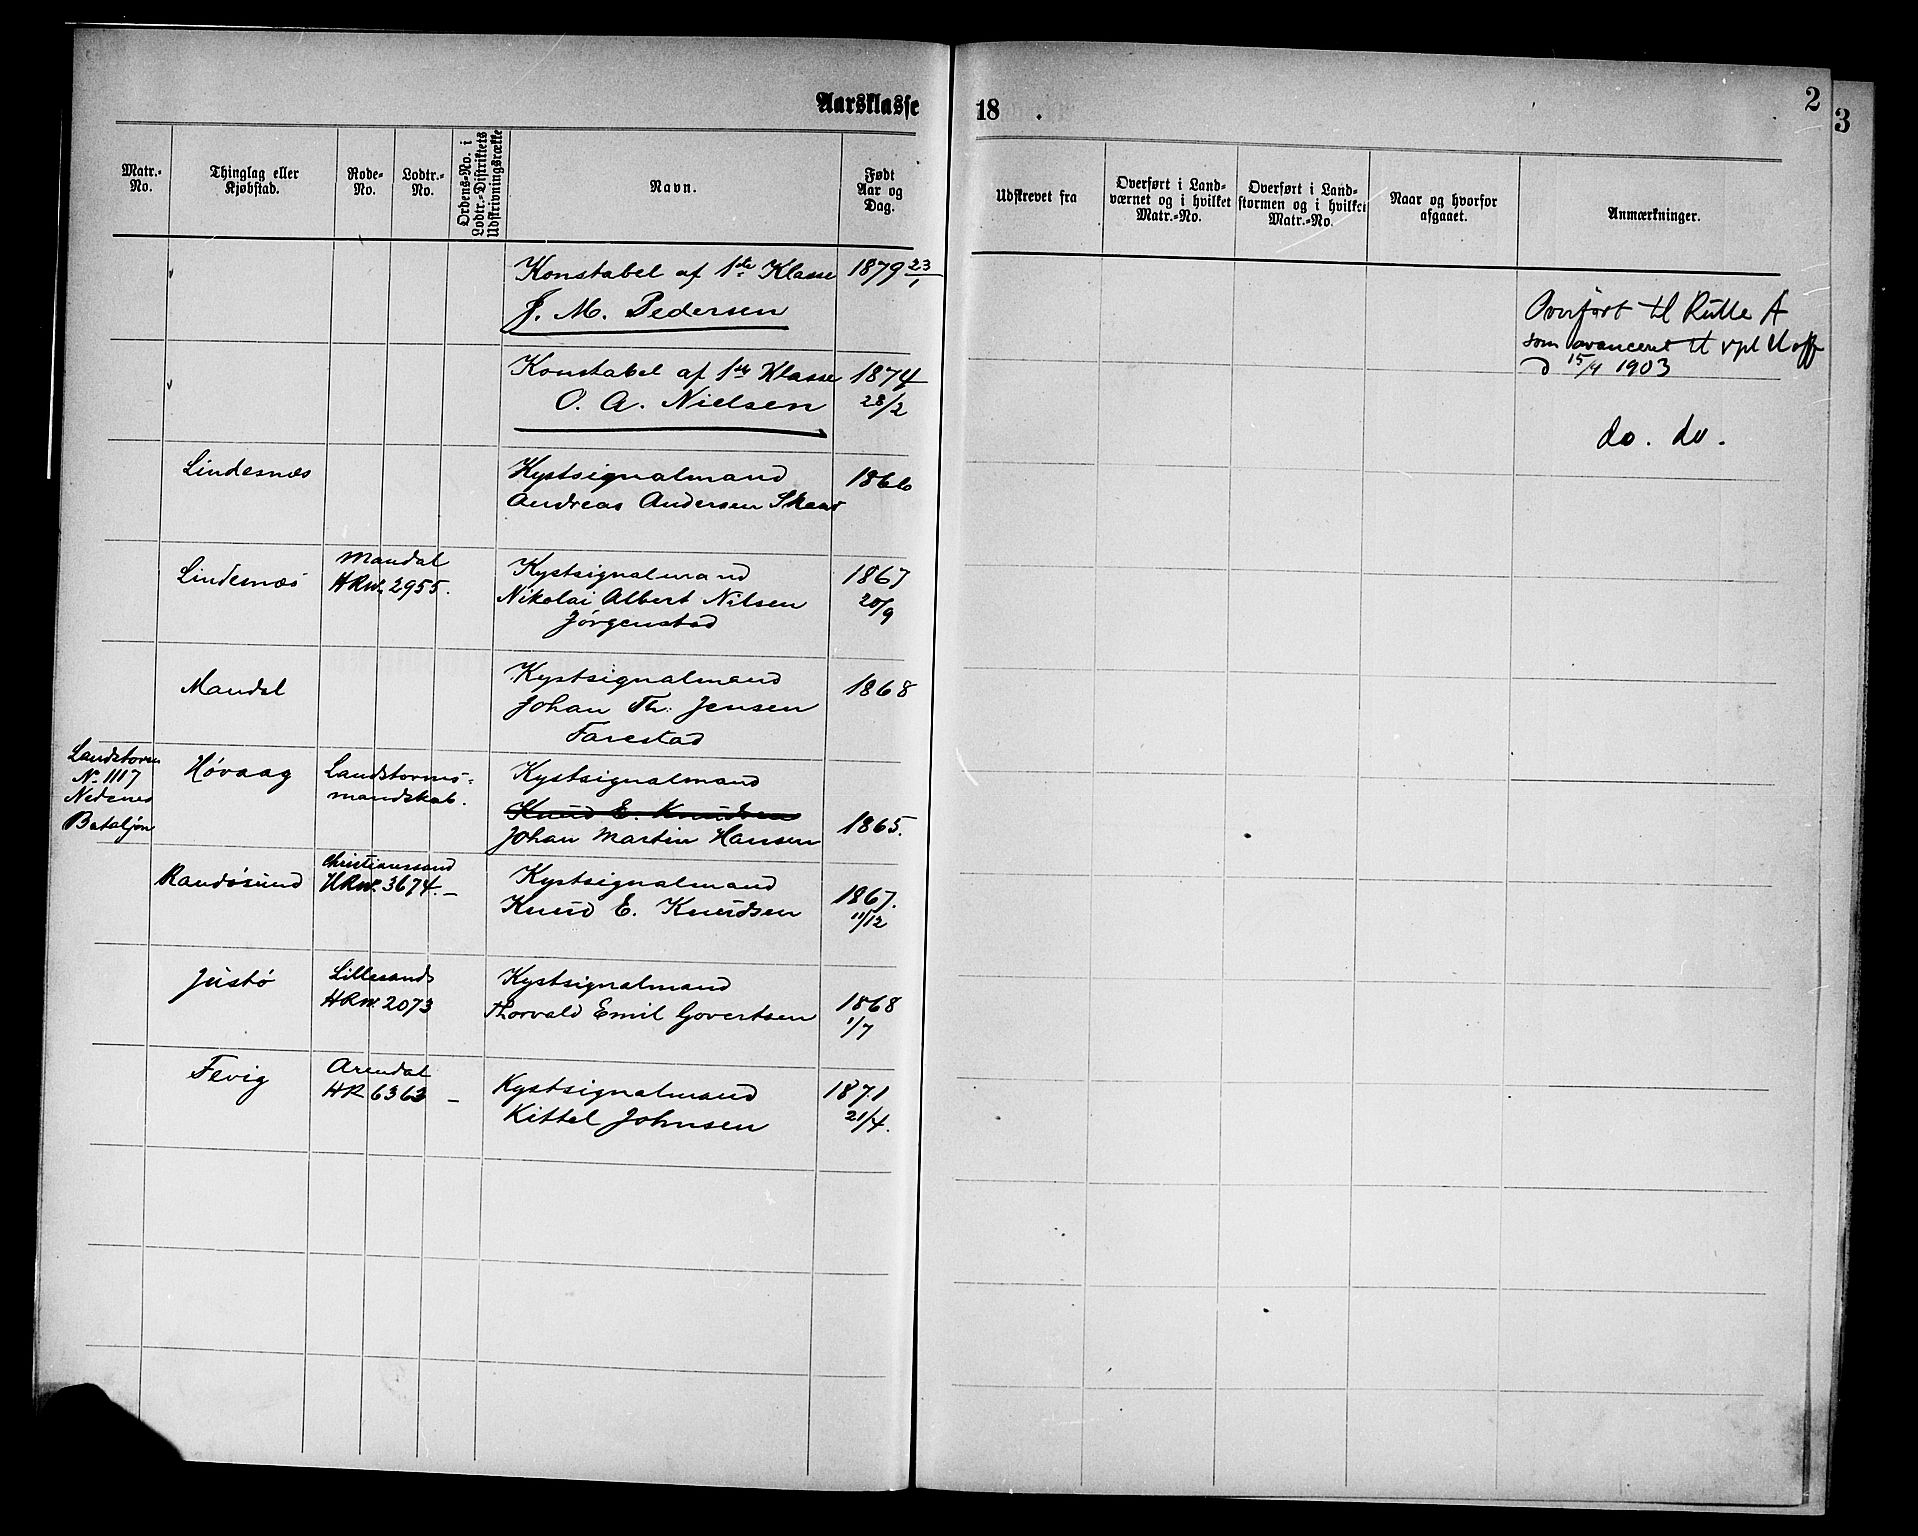 Aarsklasse 18 .
2
3
Matr.-No.
Thinglag eller Kjøbstad.
Rode-No.
Lodtr.-No.
Ordens-No. i Lodtr.-Distriktets Udskrivningsrække
Navn.
Født Aar og Dag.
Udskrevet fra
Overført i Landværnet og i hvilket Matr.-No.
Overført i Landstormen og i hvilket Matr.-No.
Naar og hvorfor afgaaet.
Anmærkninger.
Konstabel af 1ste Klasse 1879 23/1
J. M. Pedersen
Overført til Rulle A
som avanceret til vpl Uoff
d 15/4 1903
Konstabel af 1ste Klasse 1874
O. A. Nielsen 28/2
do. do.
Lindesnæs Kystsignalmand 1866
Andreas Andersen Skaar
Lindesnæs Mandal Kystsignalmand 1867
HRNo. 2955. Nikolai Albert Nilsen 20/9
Jørgenstad
Mandal Kystsignalmand 1868
Johan Th. Jensen
Farestad
Landstorm Høvaag Landstorms- Kystsignalmand
No 1117 mandskab. Knud E. Knudsen
Nedenes Johan Martin Hansen 1865.
Bataljon
Randøsund Christianssand Kystsignalmand 1867.
HRNo. 3674. – Knud E. Knudsen 11/12
Justø Lillesands Kystsignalmand 1868
HRNo. 2073 Thorvald Emil Govertsen 1/7
Fevig Arendal Kystsignalmand 1871
HR 6363 – Kittel Johnsen 21/4.